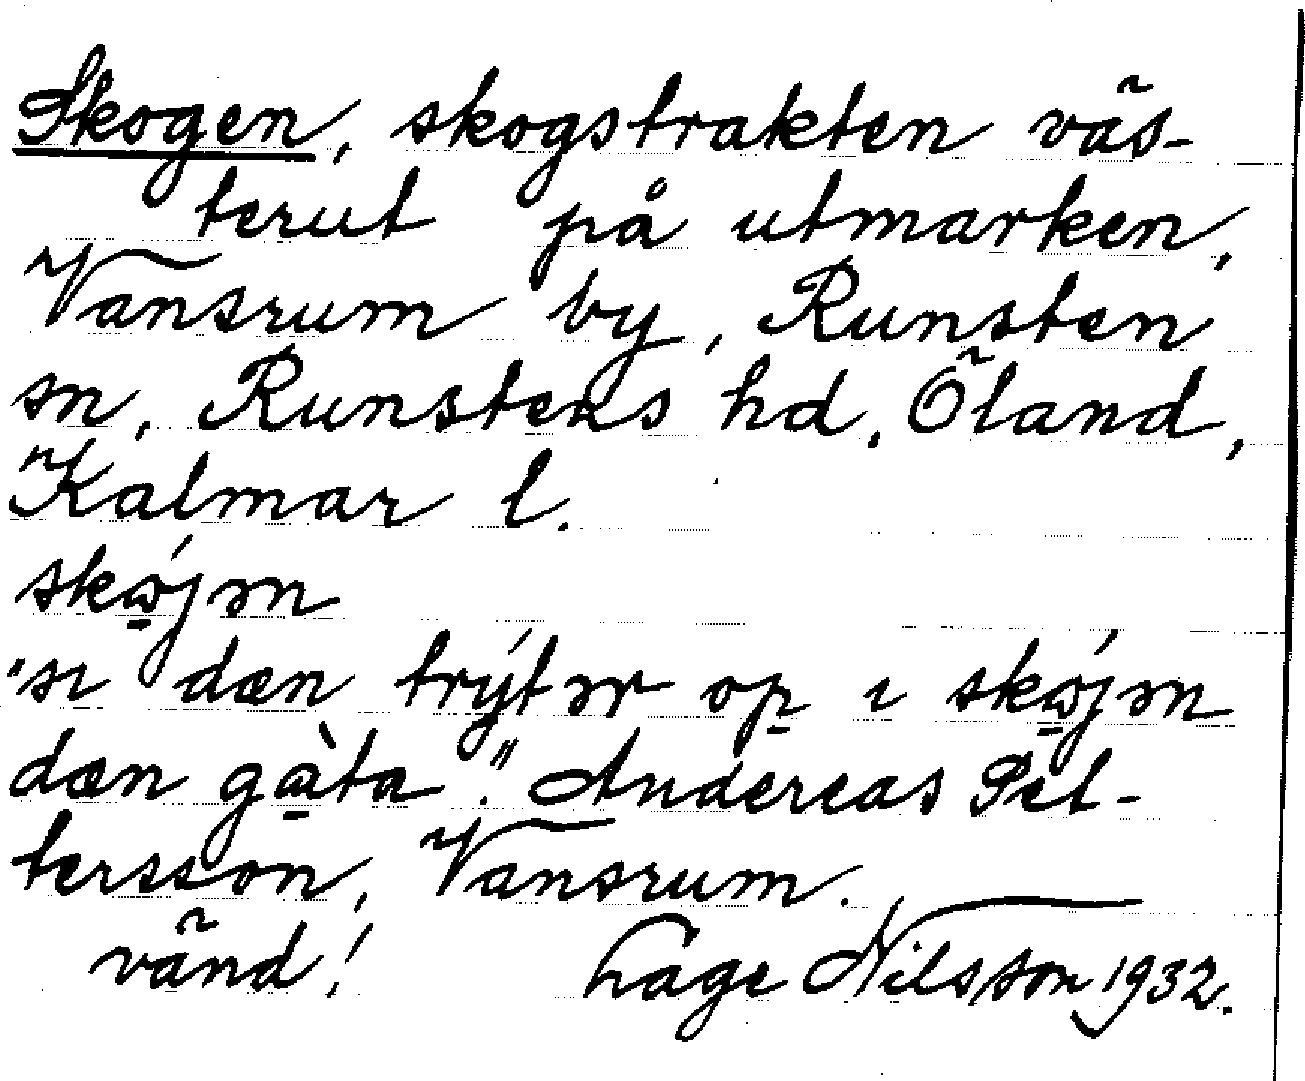 Skogen, skogstrakten väs-
terut på utmarken,
Vansrum by, Runsten
sn, Runstens hd, Öland,
Kalmar l.
skώ̱jən
"sı dæn trýtər op̱ ı skώ̱jən
dæn gὰ̱ta". Andereas Pet-
tersson, Vansrum.
vänd! Lage Nilsson 1932.